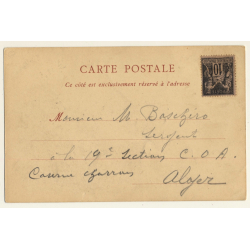 CARTE POSTALE
Ce côté est exclusivement réservé à l'adresse
Monsieur M. Boschéro
Sergent
à la 19e Section C. O. A.
Caserne Charron
Alger
10